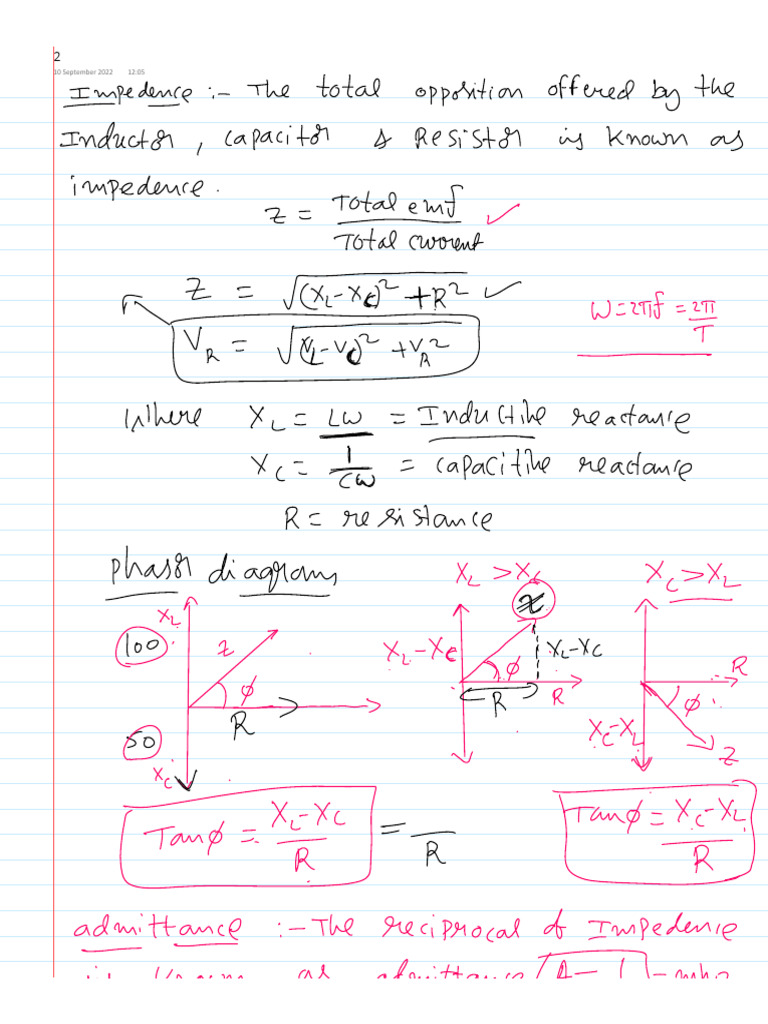 2
10 September 2022 12:05
Impedence :- The total opposition offered by the
Inductor, capacitor & Resistor is known as
impedence.
Z = Total emf / Total current
Z = √(X_L-X_C)² + R²
W = 2πf = 2π/T
V_R = √(V_L-V_C)² + V_R²
Where X_L = LW = Inductive reactance
X_C = 1/CW = capacitive reactance
R = resistance
phasor diagrams
X_L > X_C
X_C > X_L
X_L
100
Z
φ
R
50
X_C
Z
X_L-X_C
φ
X_L-X_C
R
R
R
φ
X_C-X_L
Z
Tanφ = X_L-X_C / R = / R
Tanφ = X_C-X_L / R
admittance :- The reciprocal of Impedence
is known as admittance A = 1 - mho